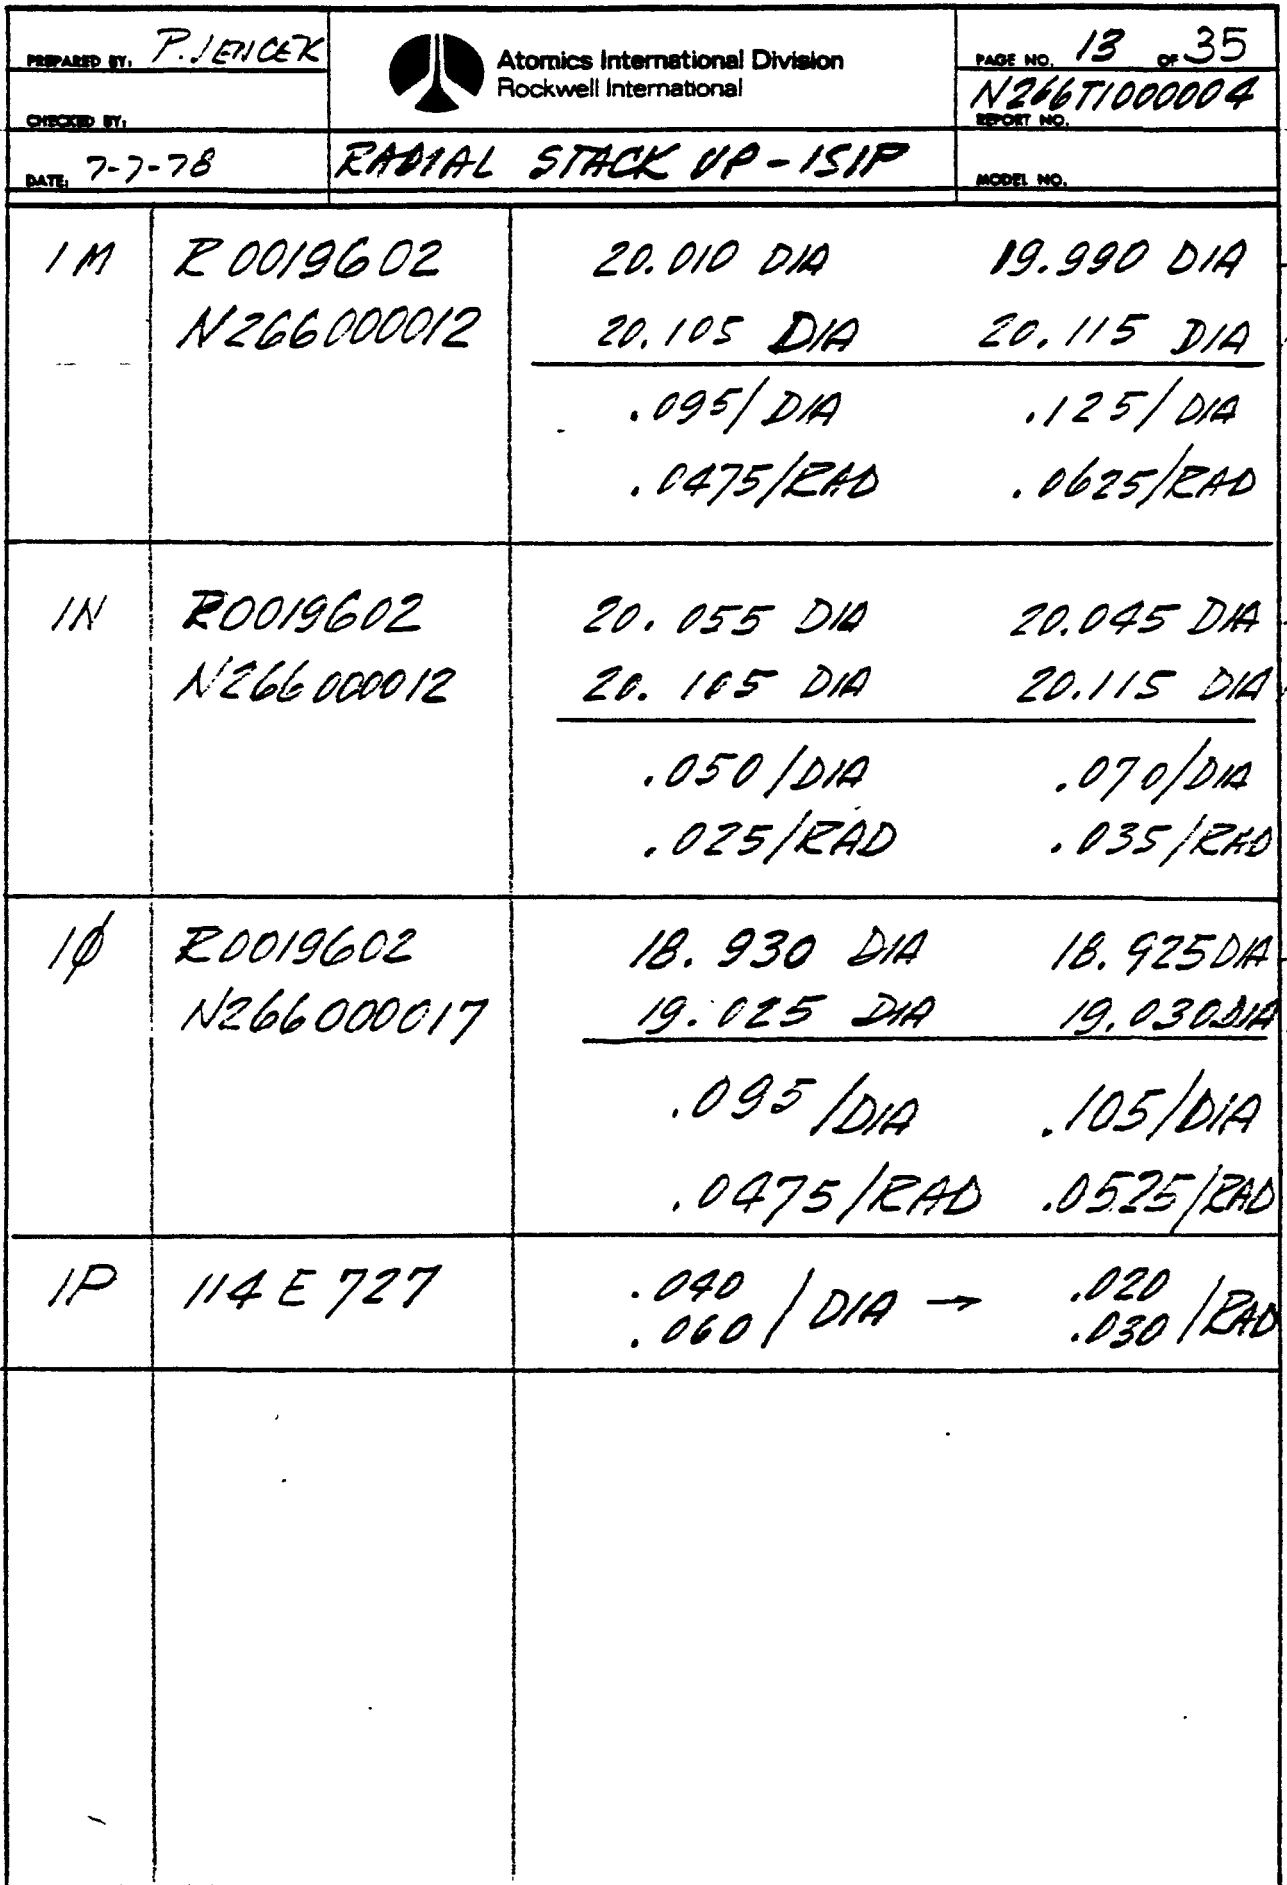 PREPARED BY: P. JENCEK
Atomics International Division
Rockwell International
PAGE NO. 13 OF 35
N266TI000004
REPORT NO.
CHECKED BY:
DATE: 7-7-78
RADIAL STACK UP - ISIP
MODEL NO.
1M R0019602 20.010 DIA 19.990 DIA
N266000012 20.105 DIA 20.115 DIA
.095/DIA .125/DIA
.0475/RAD .0625/RAD
1N R0019602 20.055 DIA 20.045 DIA
N266000012 20.105 DIA 20.115 DIA
.050/DIA .070/DIA
.025/RAD .035/RAD
1Ø R0019602 18.930 DIA 18.925 DIA
N266000017 19.025 DIA 19.030 DIA
.095/DIA .105/DIA
.0475/RAD .0525/RAD
1P 114E727 .040 / DIA → .020 /RAD
.060 .030